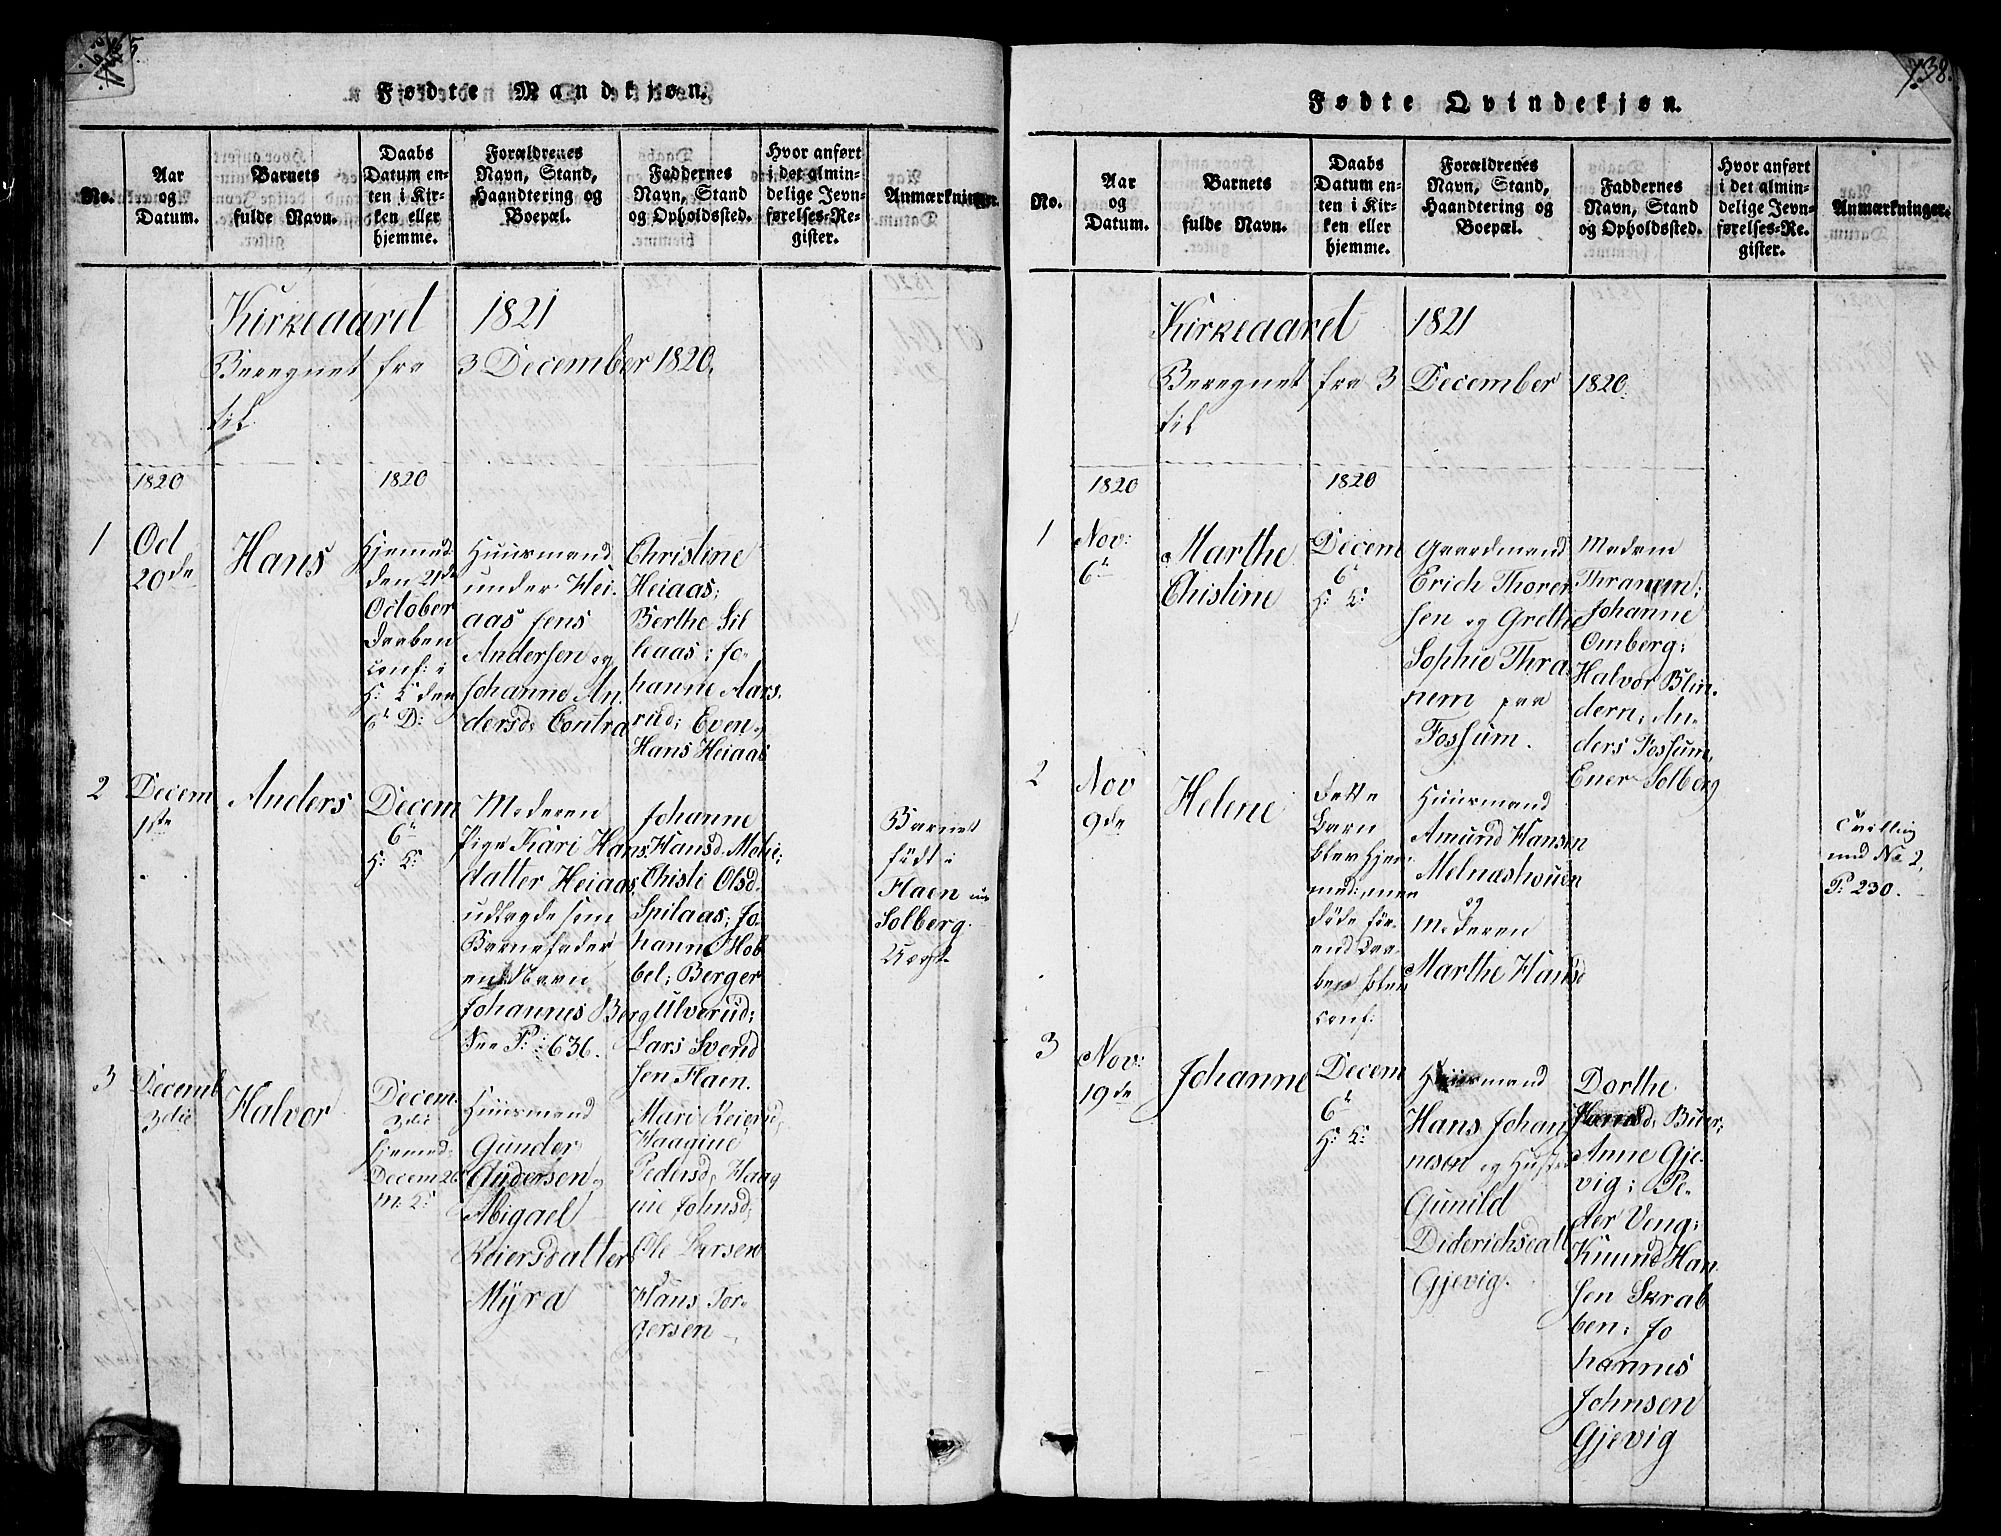 Fødte Mandkjøn.
No.
Aar
og
Datum.
Barnets
fulde Navn.
Daabs
Datum en-
ten i Kir-
ken eller
hjemme.
Forældrenes
Navn, Stand,
Haandtering og
Boepæl.
Faddernes
Navn, Stand
og Opholdssted.
Hvor anført
i det almin-
delige Jevn-
førelses-Re-
gister.
Anmærkninger.
Kirkeaaret 1821
Beregnet fra 3 December 1820.
til
1820
1820
1
Oct
20de
Hans
Hjemmed:
den 21de
October
Daaben
conf: i
H: K: den
6te D:
Huusmand
under Hei-
aas Jens
Andersen og
Johanne An-
dersd: Contra
Christine
Heiaas;
Berthe Sil
haas; Jo-
hanne Aars-
rud; Even og
Hans Heiaas
2
Decem
1ste
Anders
Decem
6te
H: K:
Moderen
Pige Kari Hans
datter Heiaas
udlagde som
Barnefader
Johannes Berg
See P: 636.
Johanne
Hansd. Moe;
Christi Olsd.
Spilaas; Jo-
hanne Hob
bel; Berger
Ulverud;
Lars Svend
sen Flaen.
Barnet
født i
Flaen
Solberg
3
Decemb
3die
Halvor
Decem.
3die
hjemmed:
Decem 26
M: K:
Huusmand
Gunder
Andersen og
Abigael
Reiersdatter
Myra
Mari Reiersd,
Haagine
Pedersd, Haag
ine Johnsd,
Ole Larsen
Hans Tor-
gersen
738.
Fødte Qvindekjøn.
No.
Aar
og
Datum.
Barnets
fulde Navn.
Daabs
Datum en-
ten i Kir-
ken eller
hjemme.
Forældrenes
Navn, Stand,
Haandtering og
Boepæl.
Faddernes
Navn, Stand
og Opholdssted.
Hvor anført
i det almin-
delige Jevn-
førelses-Re-
gister.
Anmærkninger.
Kirkeaaret 1821
Beregnet fra 3 December 1820.
til
1820
1820
1
Nov:
6te
Marthe
Christine
Decem
6te
H: K:
Gaardmand
Erich Thorer
sen og Grethe
Sophie Thra
nem paa
Fossum.
Madam
Thranem;
Johanne
Omberg;
Halvor Blin-
dern, An-
ders Fossum,
Ener Solberg
2
Nov
9de
Helene
Dette
Barn
blev hjem-
med: men
døde før-
end Daa-
ben blev
conf:
Huusmand
Amund Hansen
Melnæshouen
og
Moderen
Marthe Hansd
Tvilling
med No 2,
P: 230.
3
Nov:
19de
Johanne
Decem
6te
H: K:
Huusmand
Hans Johan-
nesen og Hustru
Gunild
Diderichsdatt
Gjevig.
Dorthe
Hansd, Buer;
Anne Gje-
vig; Pe-
der Veng;
Knund Han
sen Skrab
ben; Jo
hannes
Johnsen
Gjevig